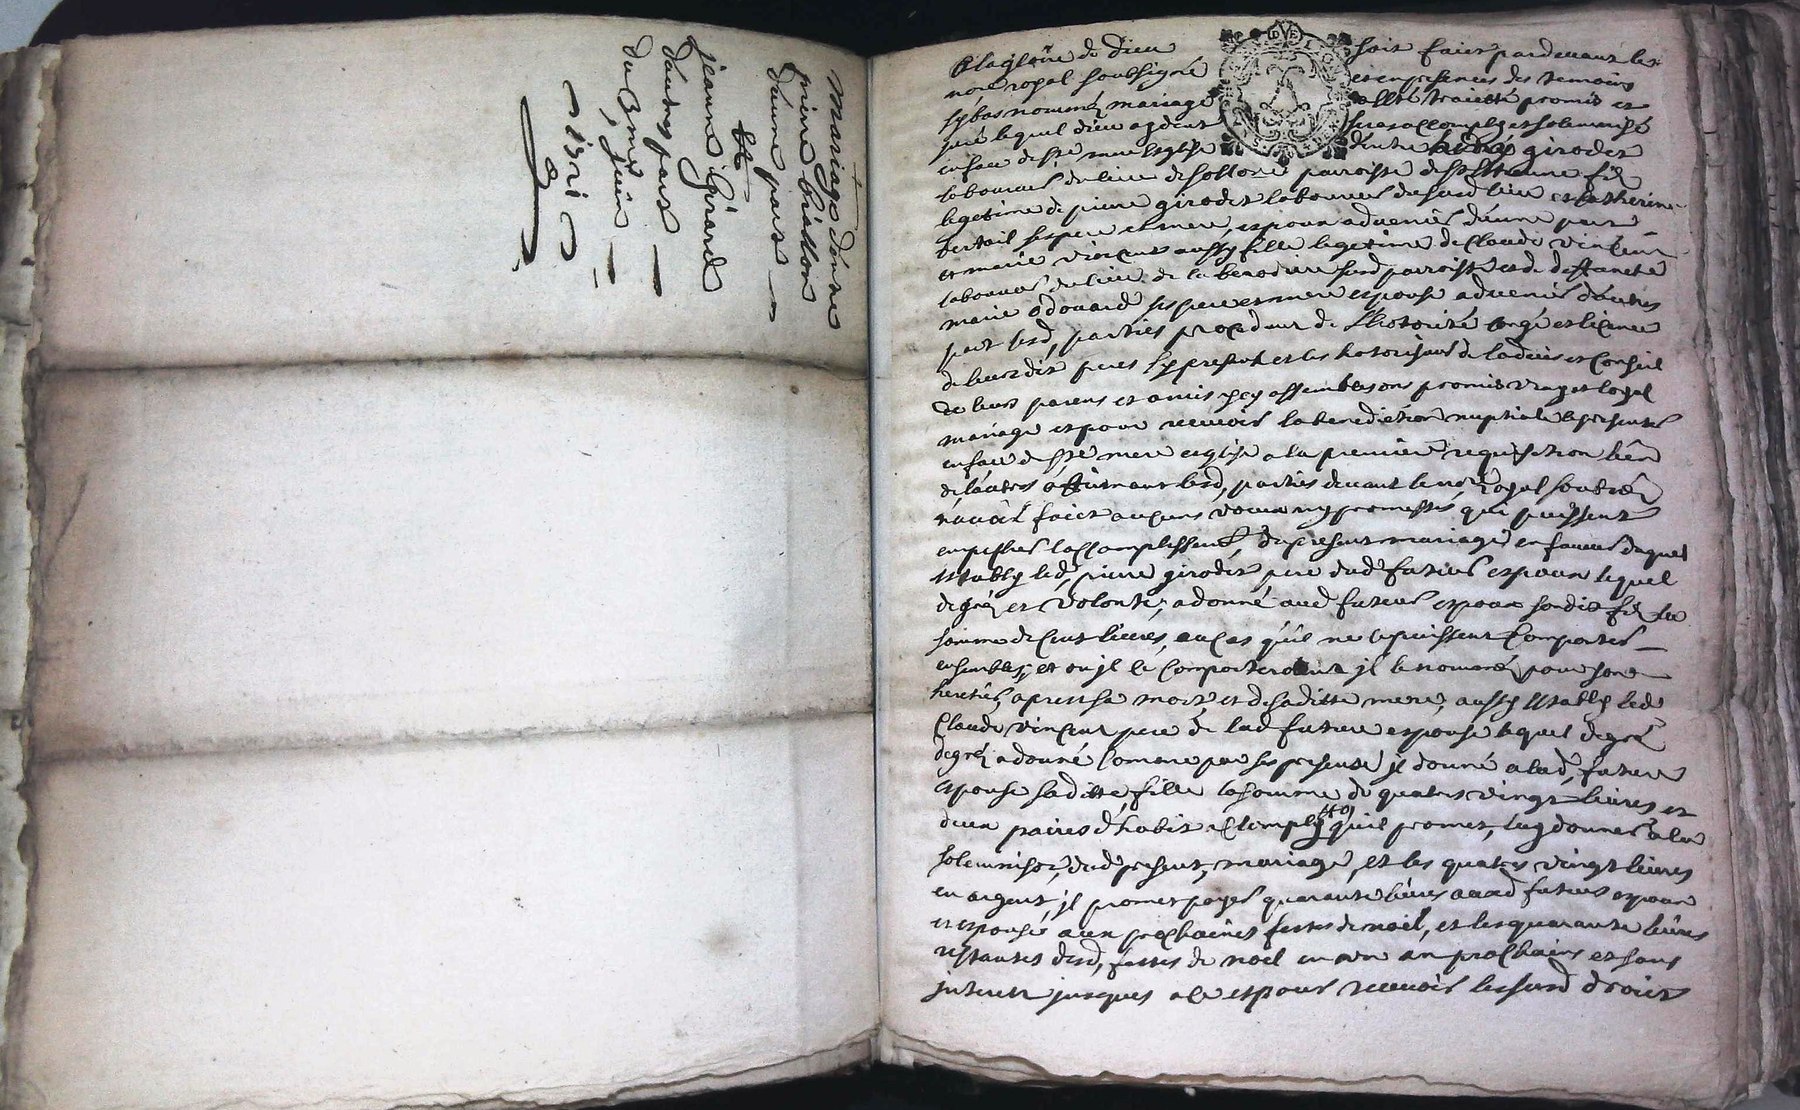 Mariage d'entre
pierre briallon
d'aune part
et
jeanne Girard
d'autres part
du 3me juin
A la gloire de Dieu soit faict pardevant le
nore royal soubsigné et en presences des temoins
sy bas nommés mariage a esté traicté promis et
juré lequel dieu aydent sera accomply et solemnisé
en face de ste mere Esglise d'entre girodet
laboureur du lieu de parroisse de st Estienne fils
legetime de pierre girodet laboureur dud lieu et Catherine
ses pere et mere, espoux advenir d'eune part
et marie vincent aussy fille legetime de Claude vincent
laboureur du lieu de la susd parroisse et de deffuncte
marie odouard ses pere et mere espouse advenir d'autres
part lesd, parties procedeant de l'hotorité congé et licence
de leurs dit peres sy present et les hotorisant de l'advis et Conseil
de leurs parens et amis assembles ons promis vray et loyal
mariage et pour recevoir la benediction nuptiale se presenter
en face de ste mere esglise a la premiere requisition l'un
de l'autres affirmant lesd, parties devant le nore royal soubsné
n'avoir faict aucuns voeux ny promesses qui puissent
empescher l'accomplissent, du present mariage en faveur duquel
estably led, pierre girodet pere dud futeur espoux lequel
de gré et volonté, a donné aud futeur espoux sondit fils la
somme de cent livres, au cas qu'il ne se puissent Comporter
ensembles, et ou jl se Comporteront jl le nomme pour son
heretier, apres sa mort et de saditte mere, aussy Estably led
Claude vincent pere de lad future espouse lequel de gré
de gré a donné Comme par ses presentes jl donne a lad, future
espouse saditte fille la somme de quatres vingt livres et
deux paires d'habit qu'il promet, luy donner a la
solemnisaon, dud present, mariage, et les quatres vingt livres
en argent jl promet payer quarante livres auxd futeurs espoux
et espouse aux prochaines festes de noel, et les quarante livres
restantes desd, festes de noel en un an prochains et sans
jnterest jusques a ce et pour recevoir les susd droict